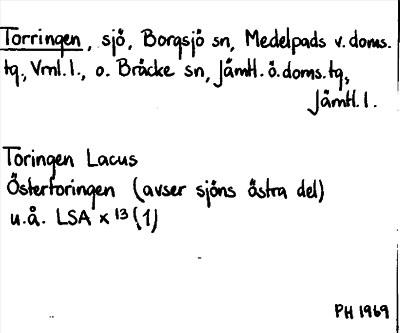 Torringen, sjö, Borgsjö sn, Medelpads v. doms.
tg., Vrnl. l., o. Bräcke sn, Jämtl. ö. doms. tg,
Jämtl. l.
Toringen Lacus
Östertoringen (avser sjöns östra del)
u.å. LSA x 13 (1)
PH 1969